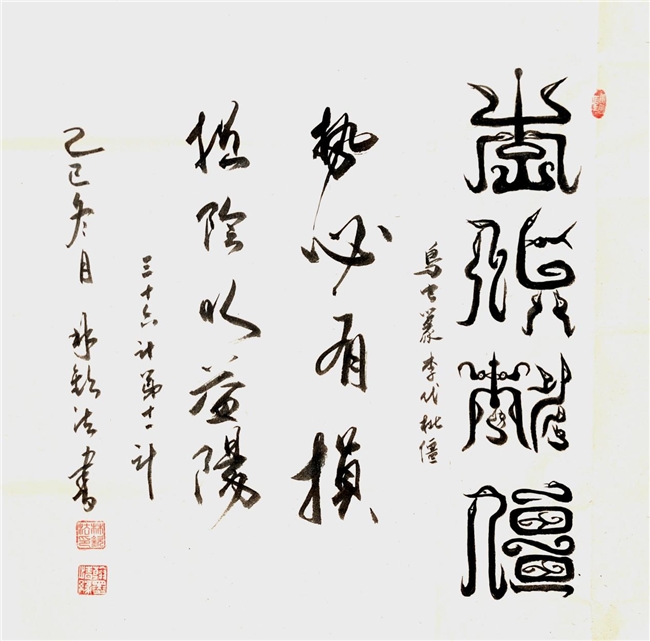 李代桃僵
鳥虫篆李代桃僵
勢必有損
損陰以益陽
三十六计第十一计
己巳冬月 林 法書